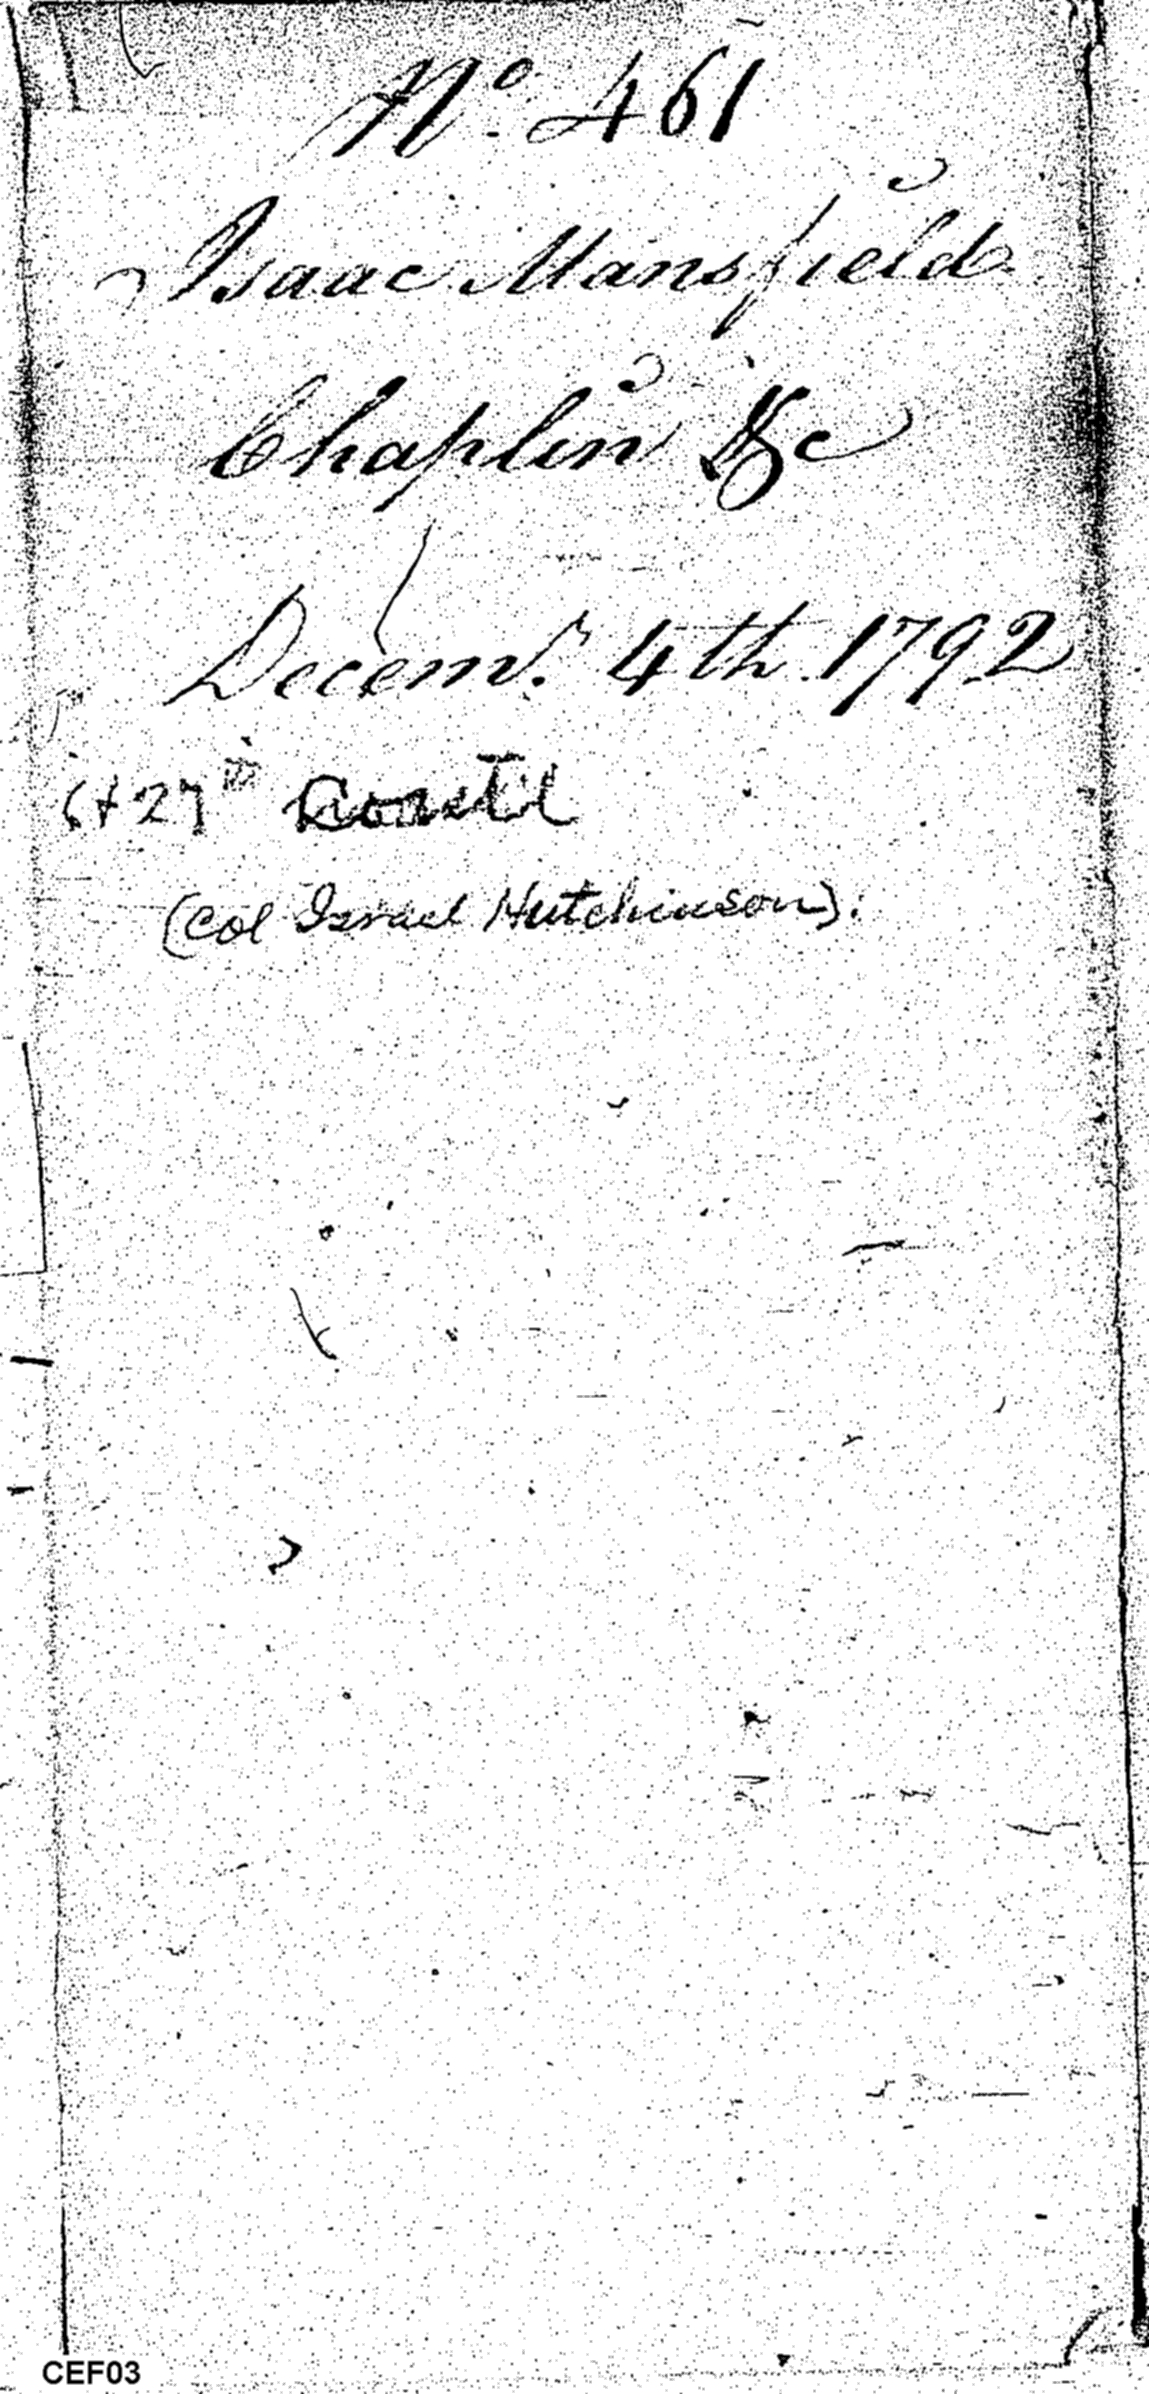 No. 461
Isaac Mansfield
Chaplin &c
Decemr. 4th 1792
27th Contl
(Col Israel Hutchinson).
CEF03